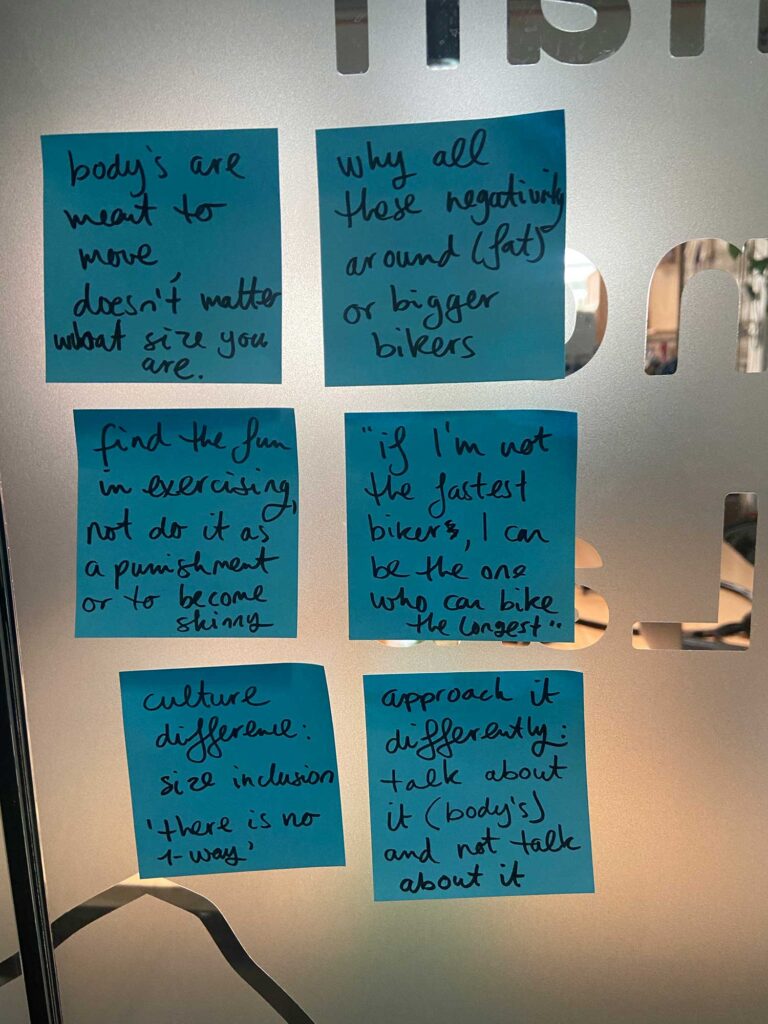 body's are
meant to
move,
doesn't matter
what size you
are.
why all
these negativity
around (fat)
or bigger
bikers
find the fun
in exercising,
not do it as
a punishment
or to become
skinny
"if I'm not
the fastest
biker, I can
be the one
who can bike
the longest"
culture
difference:
size inclusion
'there is no
1-way'
approach it
differently:
talk about
it (body's)
and not talk
about it